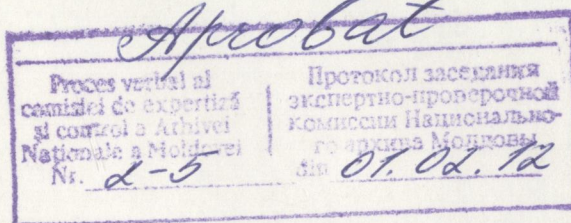 Aprobat
Proces verbal al
comisiei de expertiză
și control a Arhivei
Naționale a Moldovei
Nr. 2-5
Протокол заседания
экспертно-проверочной
комиссии Национально-
го архива Молдовы
din 01.02.12